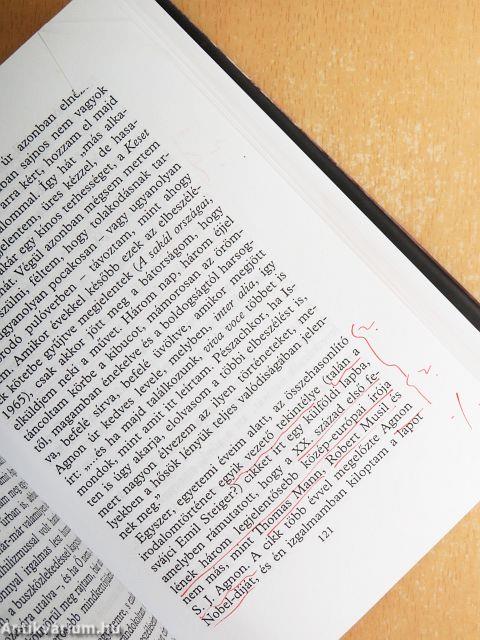 úr azonban elné
rban sajnos nem vagyok
arra kért, hozzam el majd
lommal. Így hát „más alka-
elentem, üres kézzel, de hasa-
akár egy kínos erhességet, a Keset
hát. Végül azonban mégsem mertem
szülni, féltem, hogy tolakodásnak tar-
ugyanolyan pocakosan – vagy ugyanolyan
orodó pulóverben – távoztam, mint ahogy
m. Amikor évekkel később ezek az elbeszélé-
k körtbe gyűjtve megjelentek (A sakál országai,
1965), csak akkor jött meg a bátorságom, hogy
elküldjem neki a művet. Három nap, három éjjel
táncoltam körbe a kibucot, mámorosan az öröm-
től, magamban énekelve és a boldogságtól harsog-
va, befelé sírva, befelé üvöltve, amikor megjött
Agnon úr kedves levele, melyben, inter alia, így
írt: „...és ha majd találkozunk, viva voce többet is
mondok, mint amit itt leírtam. Pészachkor, ha Is-
ten is úgy akarja, elolvasom a többi elbeszélést is,
mert nagyon élvezem az ilyen történeteket, me-
lyekben a hősök lényük teljes valódiságában jelen-
nek meg.”
Egyszer, egyetemi éveim alatt, az összehasonlító
irodalomtörténet egyik vezető tekintélye (talán a
svájci Emil Steiger?) cikket írt egy külföldi lapba,
amelyben rámutatott, hogy a XX. század első fe-
lének három legjelentősebb közép-európai írója
nem más, mint Thomas Mann, Robert Musil és
S. J. Agnon. A cikk több évvel megelőzte Agnon
Nobel-díját, és én izgalmamban kiloptam a lapot
121
Antikvarium.hu